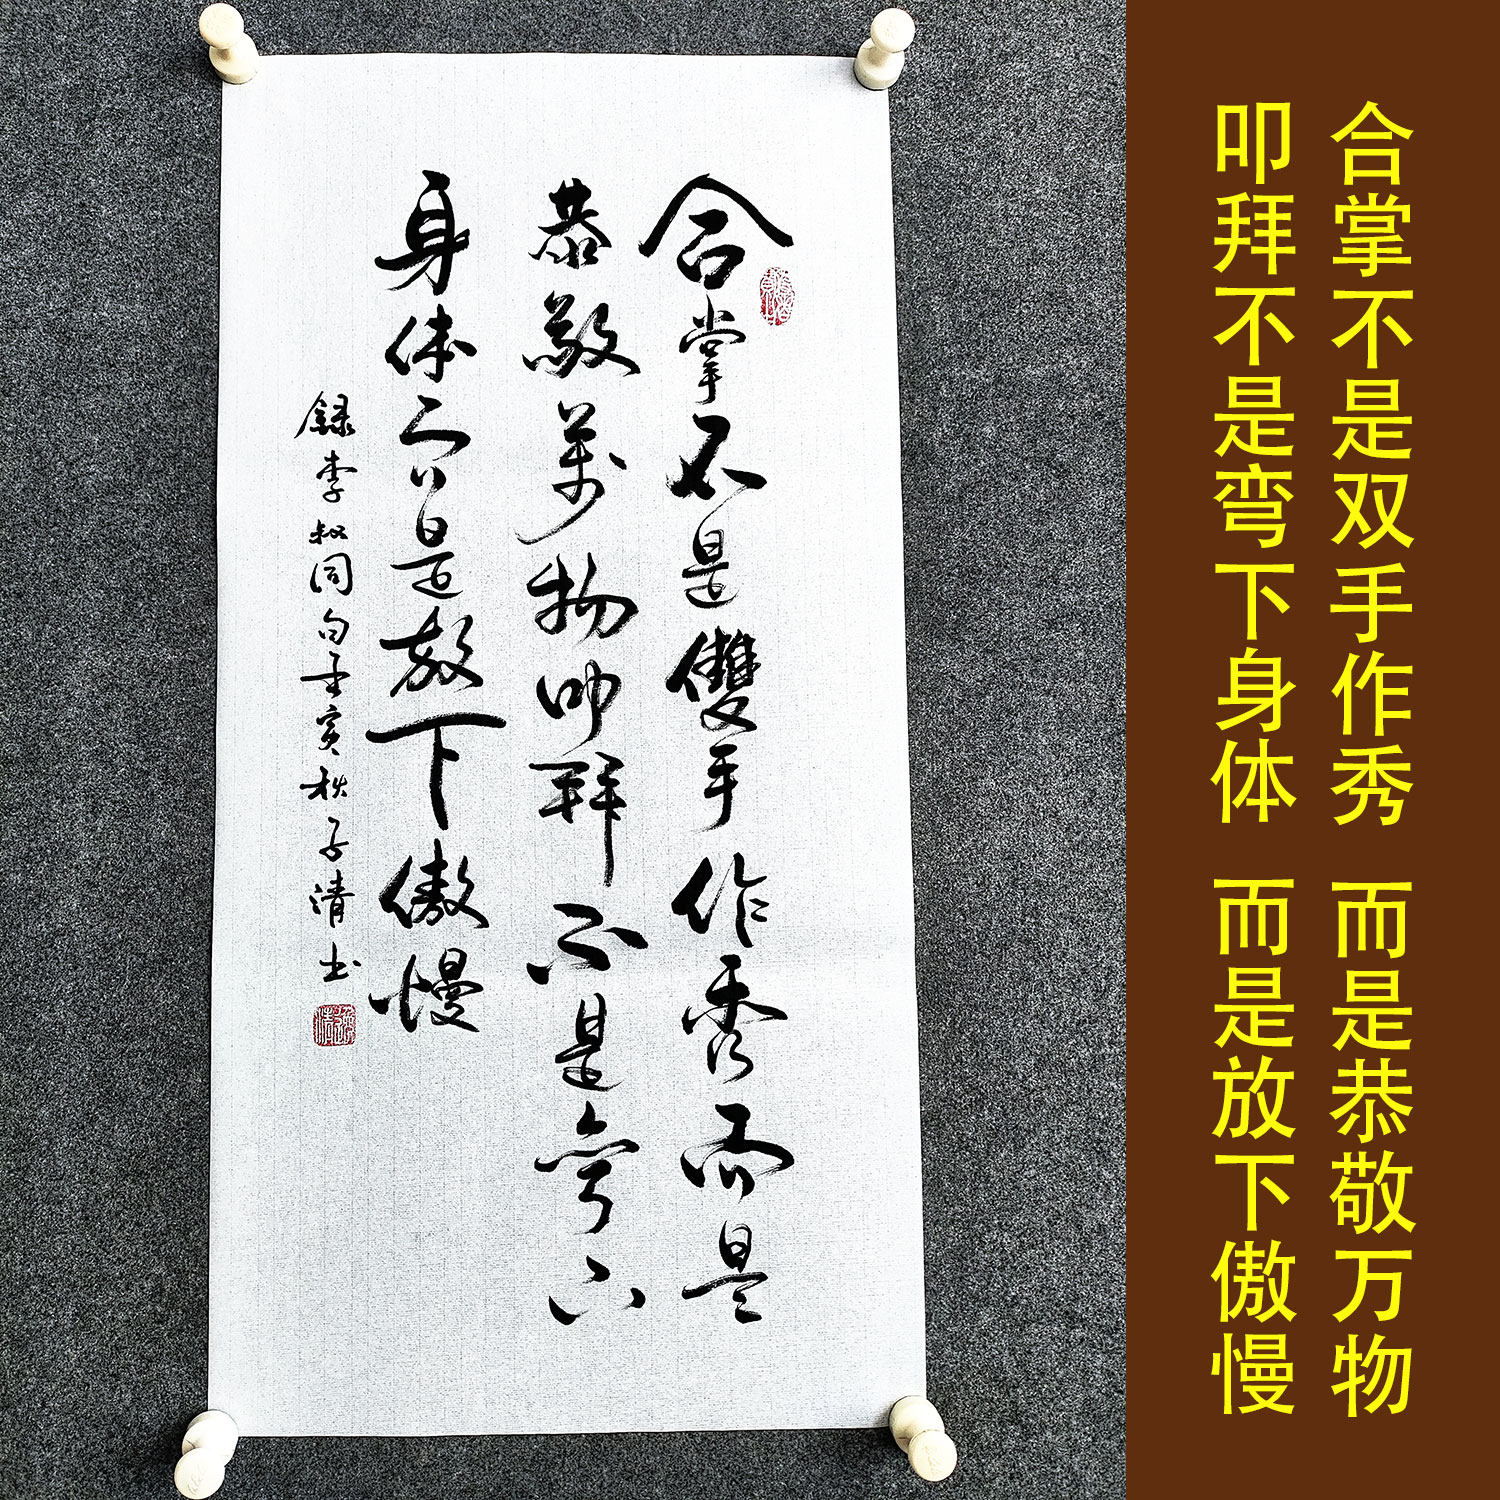 合掌不是双手作秀 而是恭敬万物
叩拜不是弯下身体 而是放下傲慢
合掌不是雙手作秀而是
恭敬萬物叩拜不是弯下
身体而是放下傲慢
録李叔同句壬寅秋子清书